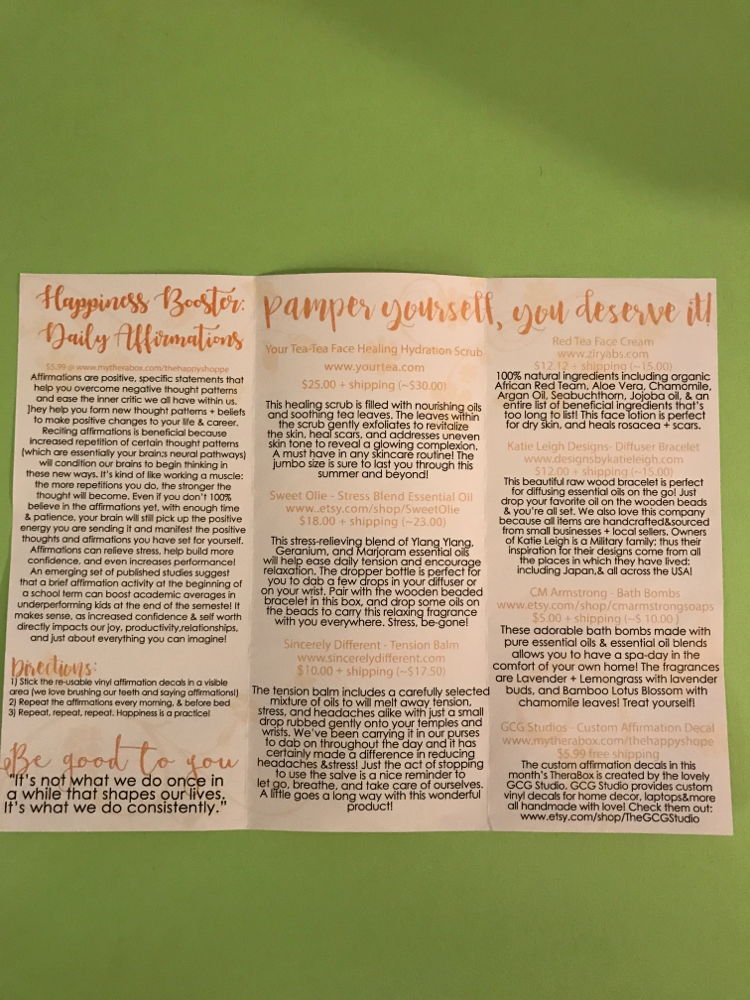 Happiness Booster:
Daily Affirmations
$5.99 @ www.mytherabox.com/thehappyshoppe
Affirmations are positive, specific statements that
help you overcome negative thought patterns
and ease the inner critic we all have within us.
They help you form new thought patterns + beliefs
to make positive changes to your life & career.
Reciting affirmations is beneficial because
increased repetition of certain thought patterns
(which are essentially your brain;s neural pathways)
will condition our brains to begin thinking in
these new ways. It's kind of like working a muscle:
the more repetitions you do, the stronger the
thought will become. Even if you don't 100%
believe in the affirmations yet, with enough time
& patience, your brain will still pick up the positive
energy you are sending it and manifest the positive
thoughts and afirmations you have set for yourself.
Affirmations can relieve stress, help build more
confidence, and even increases performance!
An emerging set of published studies suggest
that a brief affirmation activity at the beginning of
a school term can boost academic averages in
underperforming kids at the end of the semeste! It
makes sense, as increased confidence & self worth
directly impacts our joy, productivity,relationships,
and just about everything you can imagine!
Directions:
1) Stick the re-usable vinyl affirmation decals in a visible
area (we love brushing our teeth and saying affirmations!)
2) Repeat the affirmations every morning, & before bed
3) Repeat, repeat, repeat. Happiness is a practice!
Be good to you
"It's not what we do once in
a while that shapes our lives.
It's what we do consistently."
pamper yourself, you deserve it!
Your Tea-Tea Face Healing Hydration Scrub
www.yourtea.com
$25.00 + shipping (~$30.00)
This healing scrub is filled with nourishing oils
and soothing tea leaves. The leaves within
the scrub gently exfoliates to revitalize
the skin, heal scars, and addresses uneven
skin tone to reveal a glowing complexion.
A must have in any skincare routine! The
jumbo size is sure to last you through this
summer and beyond!
Sweet Olie - Stress Blend Essential Oil
www..etsy.com/shop/SweetOlie
$18.00 + shipping (~23.00)
This stress-relieving blend of Ylang Ylang,
Geranium, and Marjoram essential oils
will help ease daily tension and encourage
relaxation. The dropper bottle is perfect for
you to dab a few drops in your diffuser or
on your wrist. Pair with the wooden beaded
bracelet in this box, and drop some oils on
the beads to carry this relaxing fragrance
with you everywhere. Stress, be-gone!
Sincerely Different - Tension Balm
www.sincerelydifferent.com
$10.00 + shipping (~$17.50)
The tension balm includes a carefully selected
mixture of oils to will melt away tension,
stress, and headaches alike with just a small
drop rubbed gently onto your temples and
wrists. We've been carrying it in our purses
to dab on throughout the day and it has
certainly made a difference in reducing
headaches &stress! Just the act of stopping
to use the salve is a nice reminder to
let go, breathe, and take care of ourselves.
A little goes a long way with this wonderful
product!
Red Tea Face Cream
www.ziryabs.com
$12.12 + shipping (~15.00)
100% natural ingredients including organic
African Red Team, Aloe Vera, Chamomile,
Argan Oil, Seabuchthorn, Jojoba oil, & an
entire list of beneficial ingredients that's
too long to list! This face lotion is perfect
for dry skin, and heals rosacea + scars.
Katie Leigh Designs- Diffuser Bracelet
www.designsbykatieleigh.com
$12.00 + shipping (~15.00)
This beautiful raw wood bracelet is perfect
for diffusing essential oils on the go! Just
drop your favorite oil on the wooden beads
& you're all set. We also love this company
because all items are handcrafted&sourced
from small businesses + local sellers. Owners
of Katie Leigh is a Military family; thus their
inspiration for their designs come from all
the places in which they have lived;
including Japan,& all across the USA!
CM Armstrong - Bath Bombs
www.etsy.com/shop/cmarmstrongsoaps
$5.00 + shipping (~$ 10.00 )
These adorable bath bombs made with
pure essential oils & essential oil blends
allows you to have a spa-day in the
comfort of your own home! The fragrances
are Lavender + Lemongrass with lavender
buds, and Bamboo Lotus Blossom with
chamomile leaves! Treat yourself!
GCG Studios - Custom Affirmation Decal
www.mytherabox.com/thehappyshope
$5.99 free shipping
The custom affirmation decals in this
month's TheraBox is created by the lovely
GCG Studio. GCG Studio provides custom
vinyl decals for home decor, laptops&more
all handmade with love! Check them out:
www.etsy.com/shop/TheGCGStudio